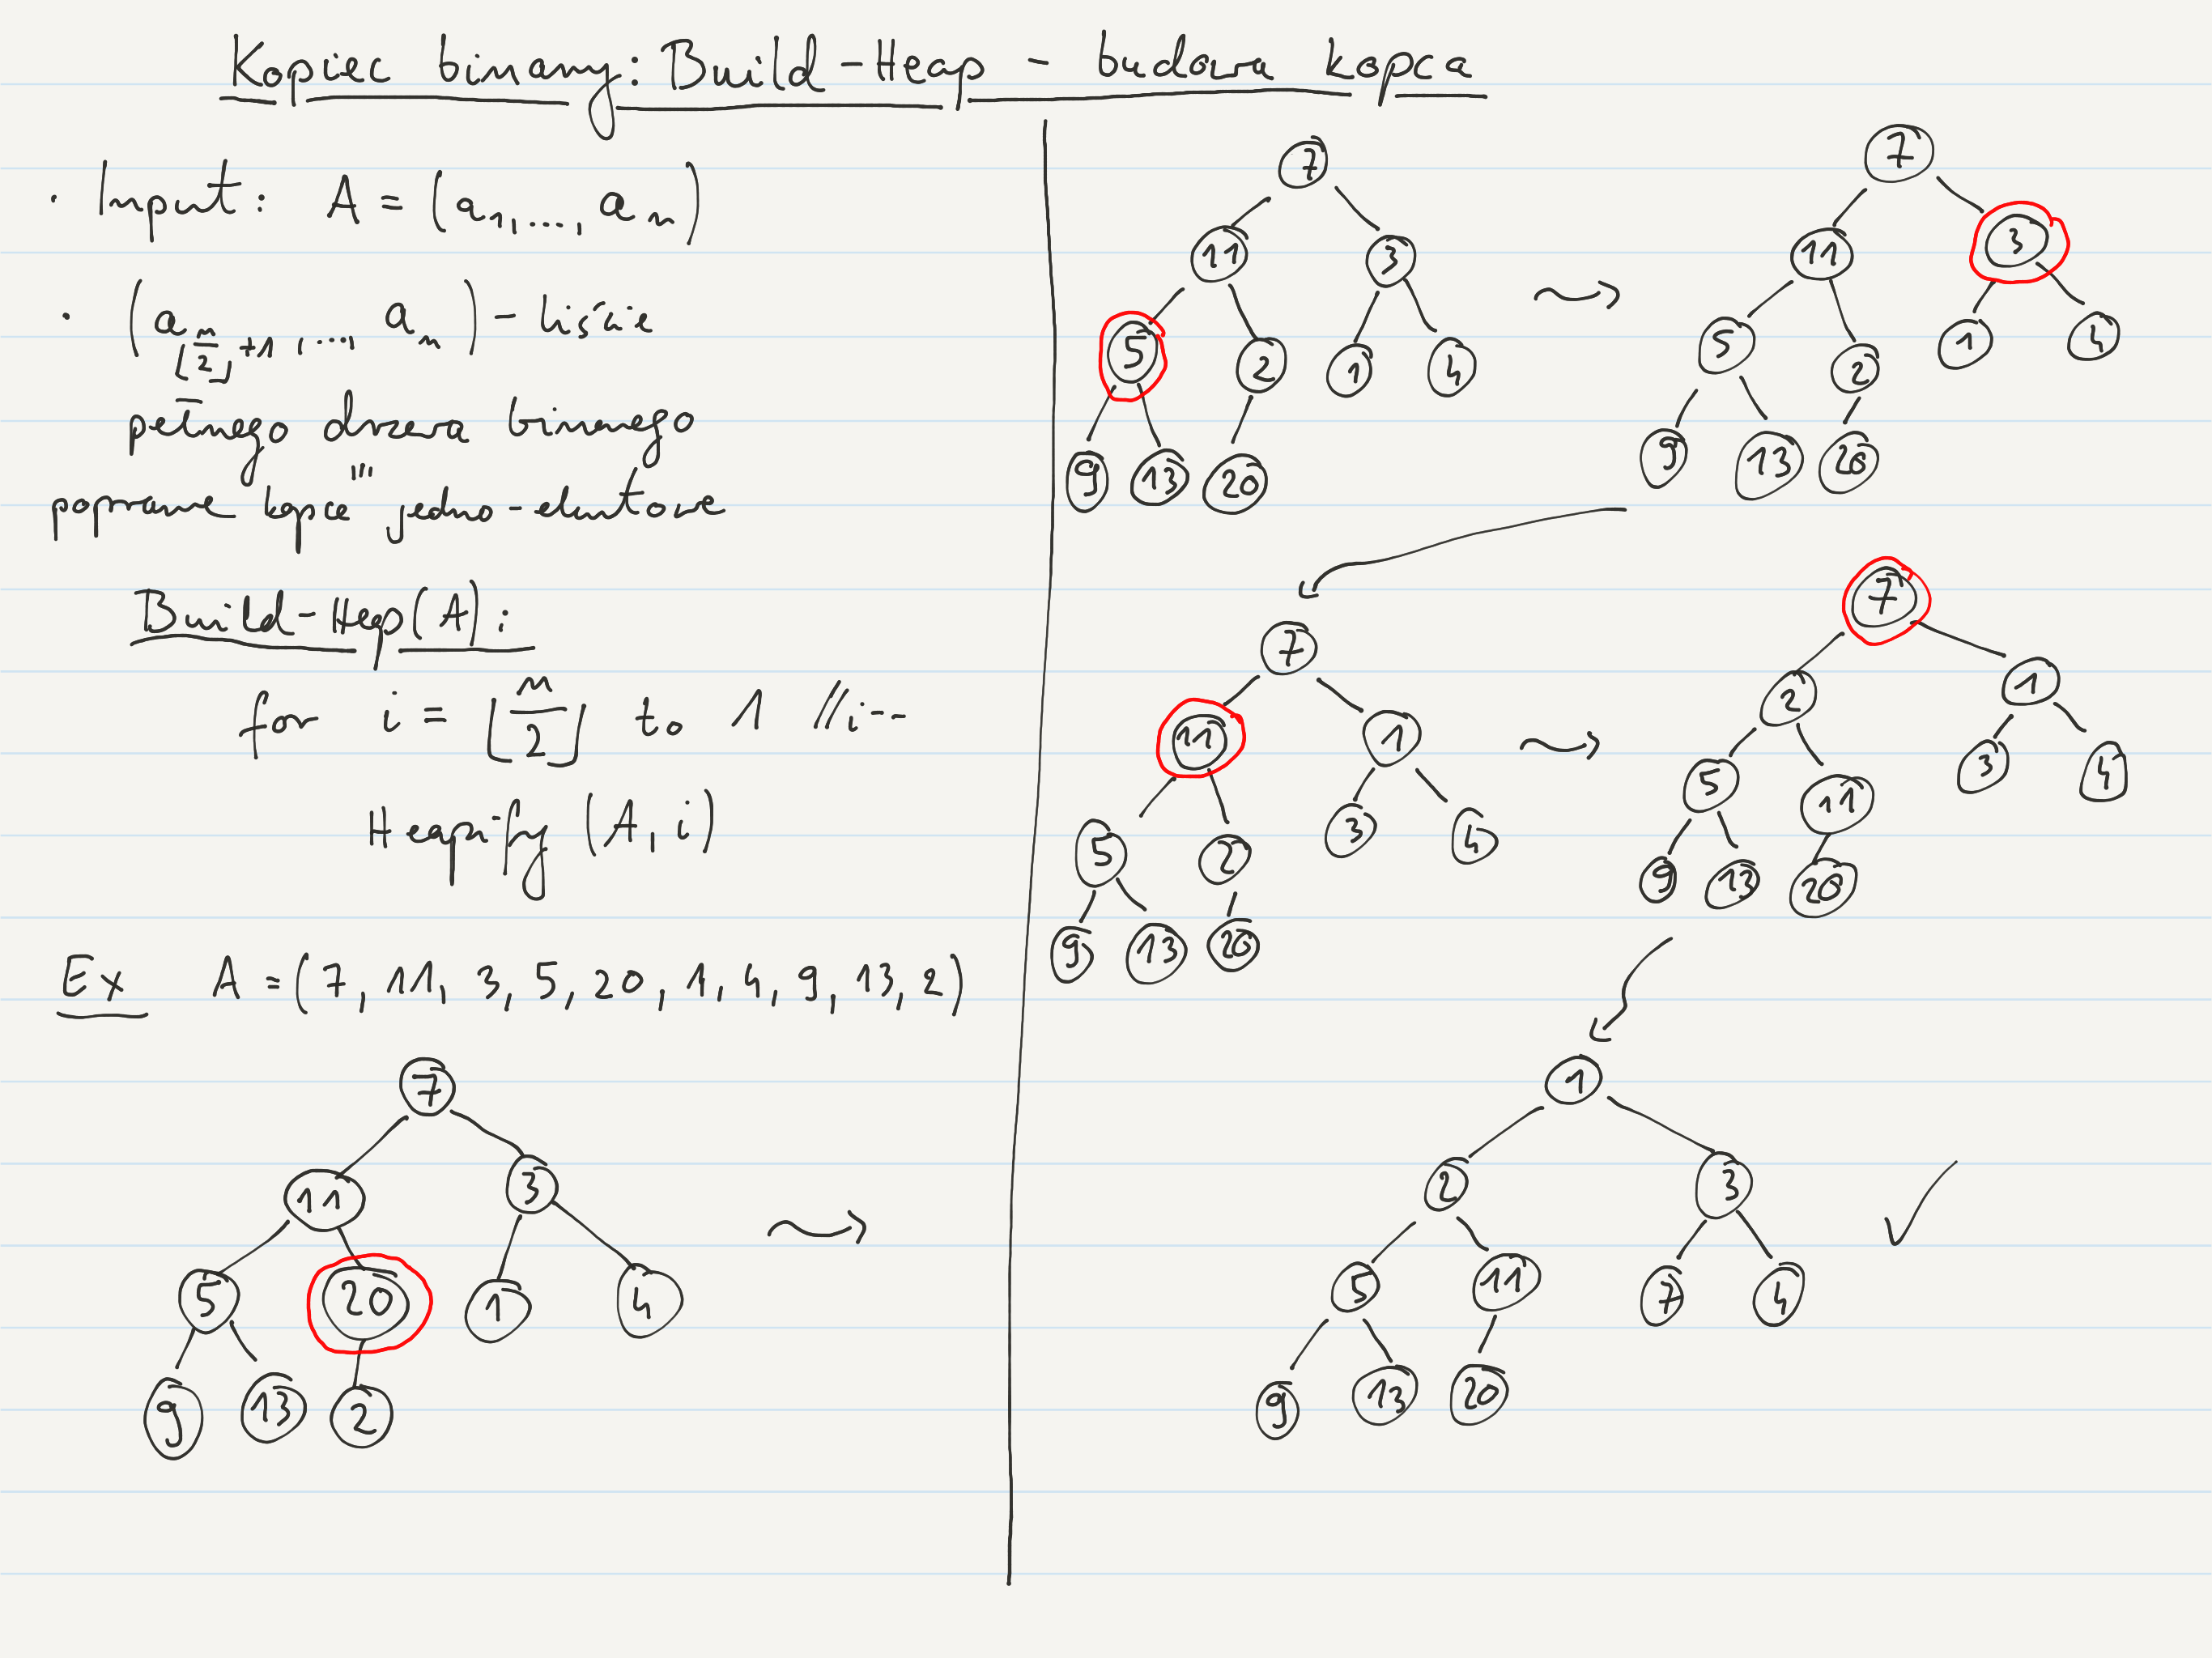 Kopiec binarny: Build-Heap - budowa kopca
· Input: A = (a₁, ..., aₙ)
· (a⌊n/2⌋+1, ..., aₙ) - liście
pełnego drzewa binarnego
poprawne kopce jedno-elentowe
Build-Heap(A):
for i = ⌊n/2⌋ to 1 //i--
Heapify (A, i)
Ex A = (7, 11, 3, 5, 20, 1, 4, 9, 13, 2)
7
11 3
5 20 1 4
9 13 2
7
11 3
5 2 1 4
9 13 20
7
11 3
5 2 1 4
9 13 20
7
11 1
5 2 3 4
9 13 20
7
2 1
5 11 3 4
9 13 20
1
2 3
5 11 7 4
9 13 20